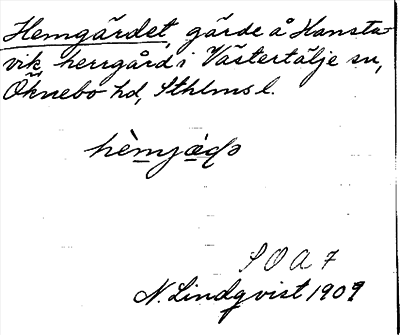 Hemgärdet, gärde å Hansta-
vik, herrgård i Västertälje sn,
Öknebo hd, Sthlms l.
S O A 7
N. Lindqvist 1909